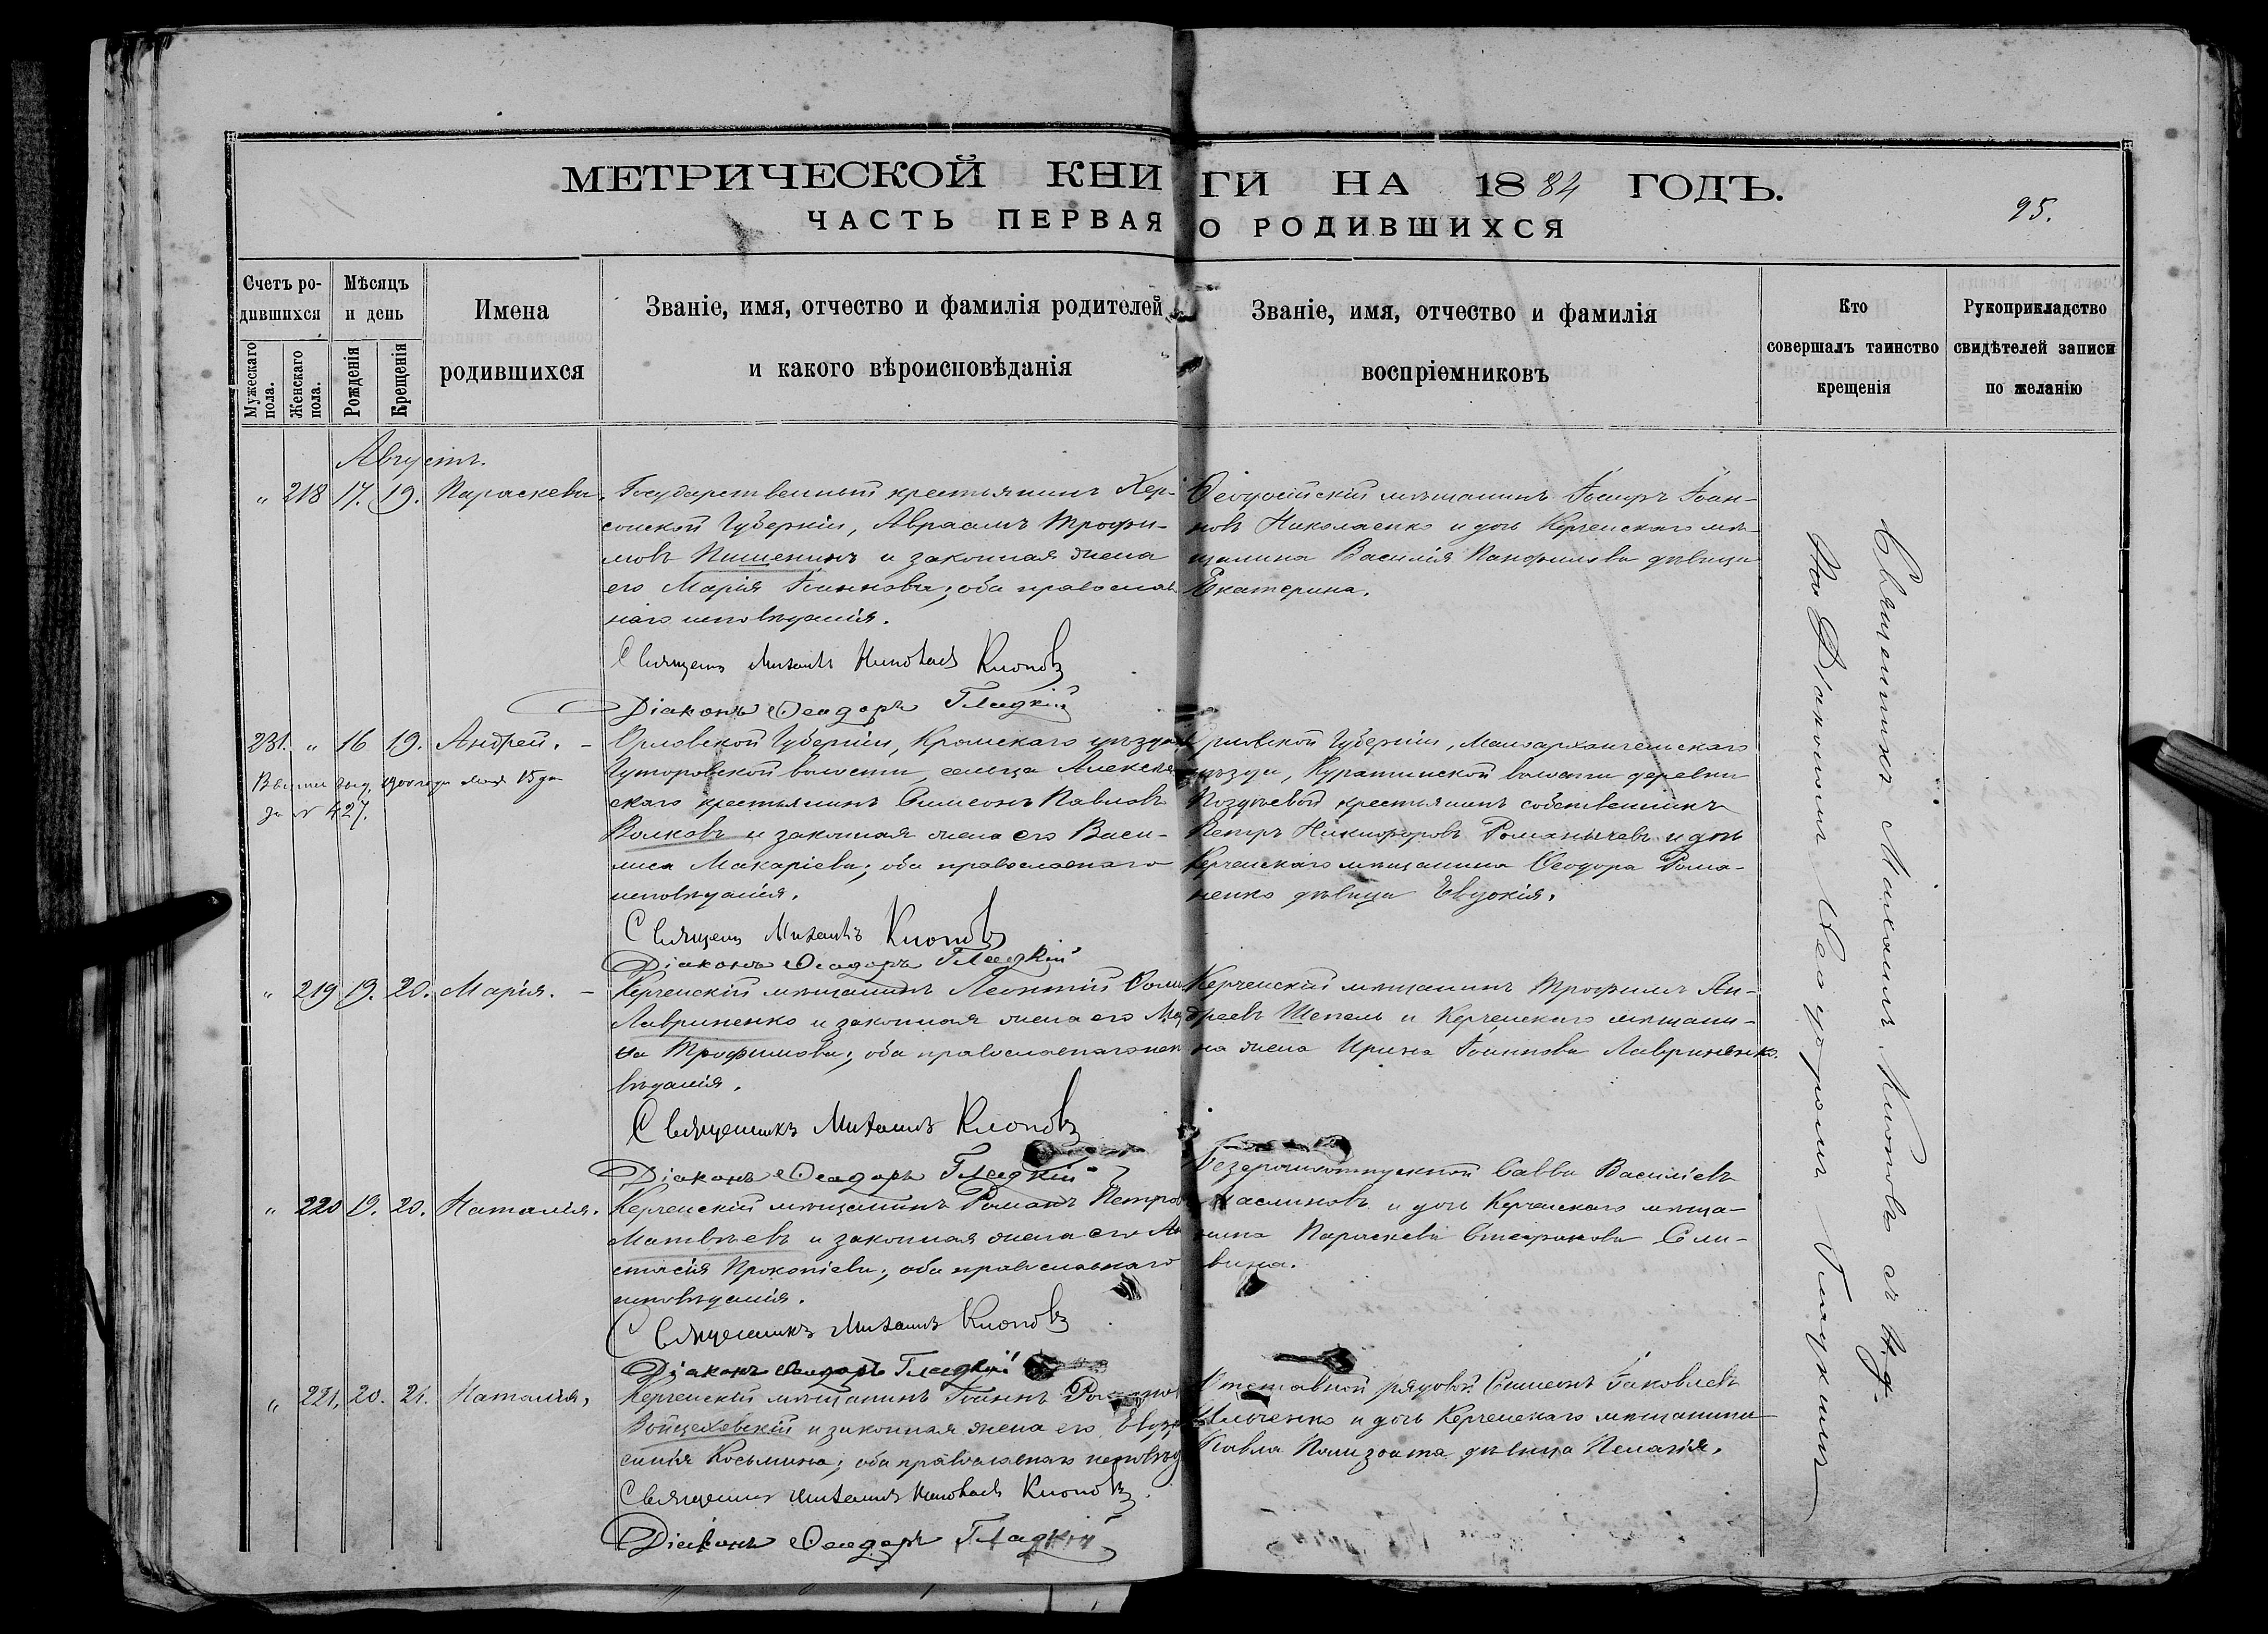 МЕТРИЧЕСКОЙ КНИГИ НА 1884 ГОДЪ.
ЧАСТЬ ПЕРВАЯ О РОДИВШИХСЯ
95.
Счетъ ро-
дившихся
Мужескаго пола.
Женскаго пола.
Мѣсяцъ
и день
Рожденія
Крещенія
Имена
родившихся
Званіе, имя, отчество и фамилія родителей
и какого вѣроисповѣданія
Званіе, имя, отчество и фамилія
воспріемниковъ
Кто
совершалъ таинство
крещенія
Рукоприкладство
свидѣтелей записи
по желанію
Августъ.
" 218 17. 19. Параскева.
Государственный крестьянинъ Хер-
сонской Губерніи, Авраамъ Трофи-
мовъ Пшенинъ и законная жена
его Марія Іоаннова; оба православ
наго исповѣданія.
Священ Михаилъ Николаев Клоповъ
Діаконъ Ѳеодоръ Гладкій
Ѳеодосійскій мѣщанинъ Іосифъ Іоан-
новъ Николаенко и дочь Керченскаго мѣ-
щанина Василія Панфилова дѣвица
Екатерина.
231. " 16 19. Андрей. -
года мая 15 дня
за № 427.
Орловской Губерніи, Кромскаго уѣзда
Гуторовской волости, сельца Алексѣев
скаго крестьянинъ Симеонъ Павловъ
Волковъ и законная жена его Васи-
лиса Макаріева; оба православнаго
исповѣданія.
Священ Михаилъ Клоповъ
Діаконъ Ѳеодоръ Гладкій
Орловской Губерніи, Малоархангельскаго
уѣзда, Куракинской волости деревни
Поздѣевой крестьянинъ собственникъ
Петръ Никифоровъ Романычевъ и дочь
Керченскаго мѣщанина Ѳеодора Рома-
ненко дѣвица Евдокія.
" 219 19. 20. Марія. -
Керченскій мѣщанинъ Леонтій
Лавриненко и законная жена его
на Трофимова; оба православнаго испо
вѣданія.
Священникъ Михаилъ Клоповъ
Діаконъ Ѳеодоръ Гладкій
Керченскій мѣщанинъ Трофимъ Ан-
дреевъ Шепель и Керченскаго мѣщани-
на жена Ирина Іоаннова Лавриненко.
" 220 19. 20. Наталія.
Керченскій мѣщанинъ Романъ Петров
Матвѣевъ и законная жена его Ана
стасія Прокопіева; оба православнаго
исповѣданія.
Священникъ Михаилъ Клоповъ
Діаконъ Ѳеодоръ Гладкій
Безсрочноотпускной Савва Василіевъ
Маслиновъ и дочь Керченскаго мѣща-
нина Параскева Стефанова Сли-
вина.
" 221. 20. 21. Наталія,
Керченскій мѣщанинъ Іоаннъ Романов
Войцеховскій и законная жена его Евфро
синія Косьмина; оба православнаго исповѣд
Священник Михаилъ Николаев Клоповъ
Діаконъ Ѳеодоръ Гладкій
Отставной рядовой Симеонъ Іаковлевъ
Ильченко и дочь Керченскаго мѣщанина
Павла дѣвица Пелагія.
Священникъ Михаилъ Клоповъ съ и. д.
Діакономъ Ѳеодоромъ Гладкимъ